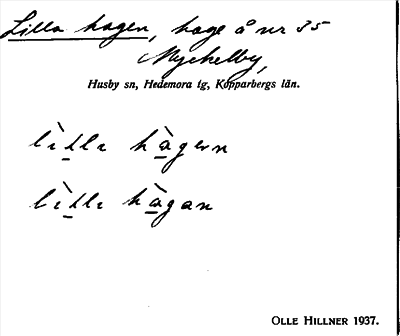 Lilla hagen, hage å nr 35
Myckelby,
Husby sn, Hedemora tg, Kopparbergs län.
lìlli hàgen
lìlli hàgan
OLLE HILLNER 1937.